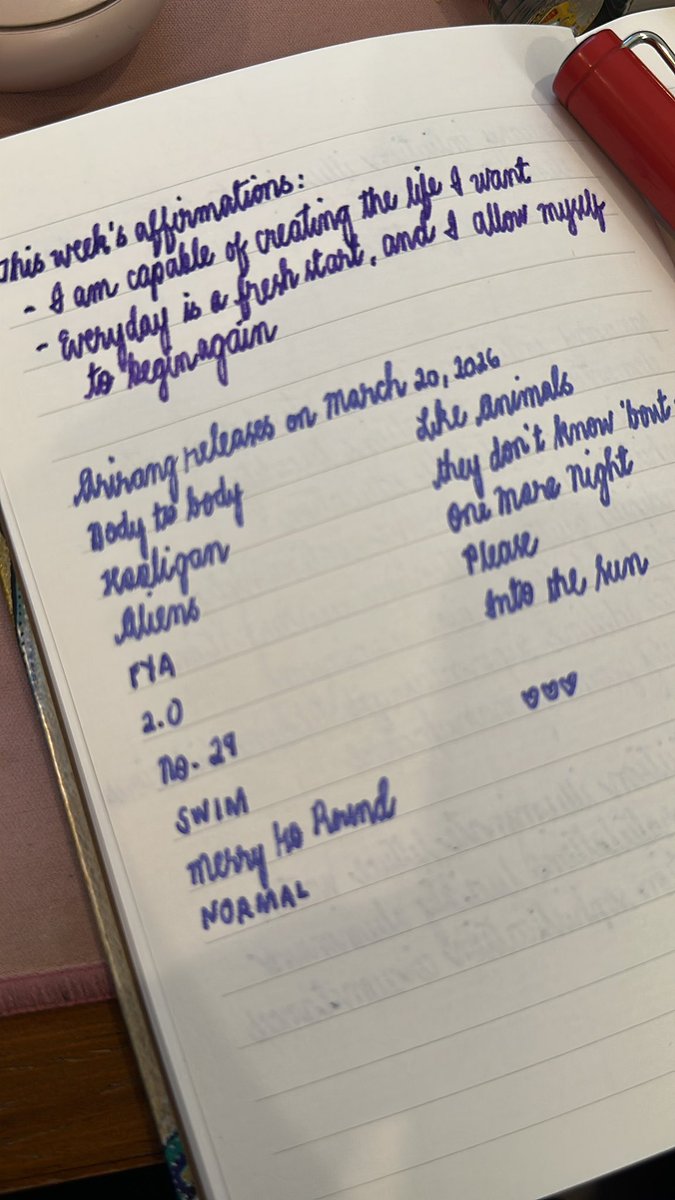 This week's affirmations:
- I am capable of creating the life I want
- Everyday is a fresh start, and I allow myself
to begin again
Arirang releases on March 20, 2026
Body to body
Hooligan
Aliens
FYA
2.0
No. 29
SWIM
Merry Go Round
NORMAL
Like Animals
they don't know 'bout
One More Night
Please
Into the Sun